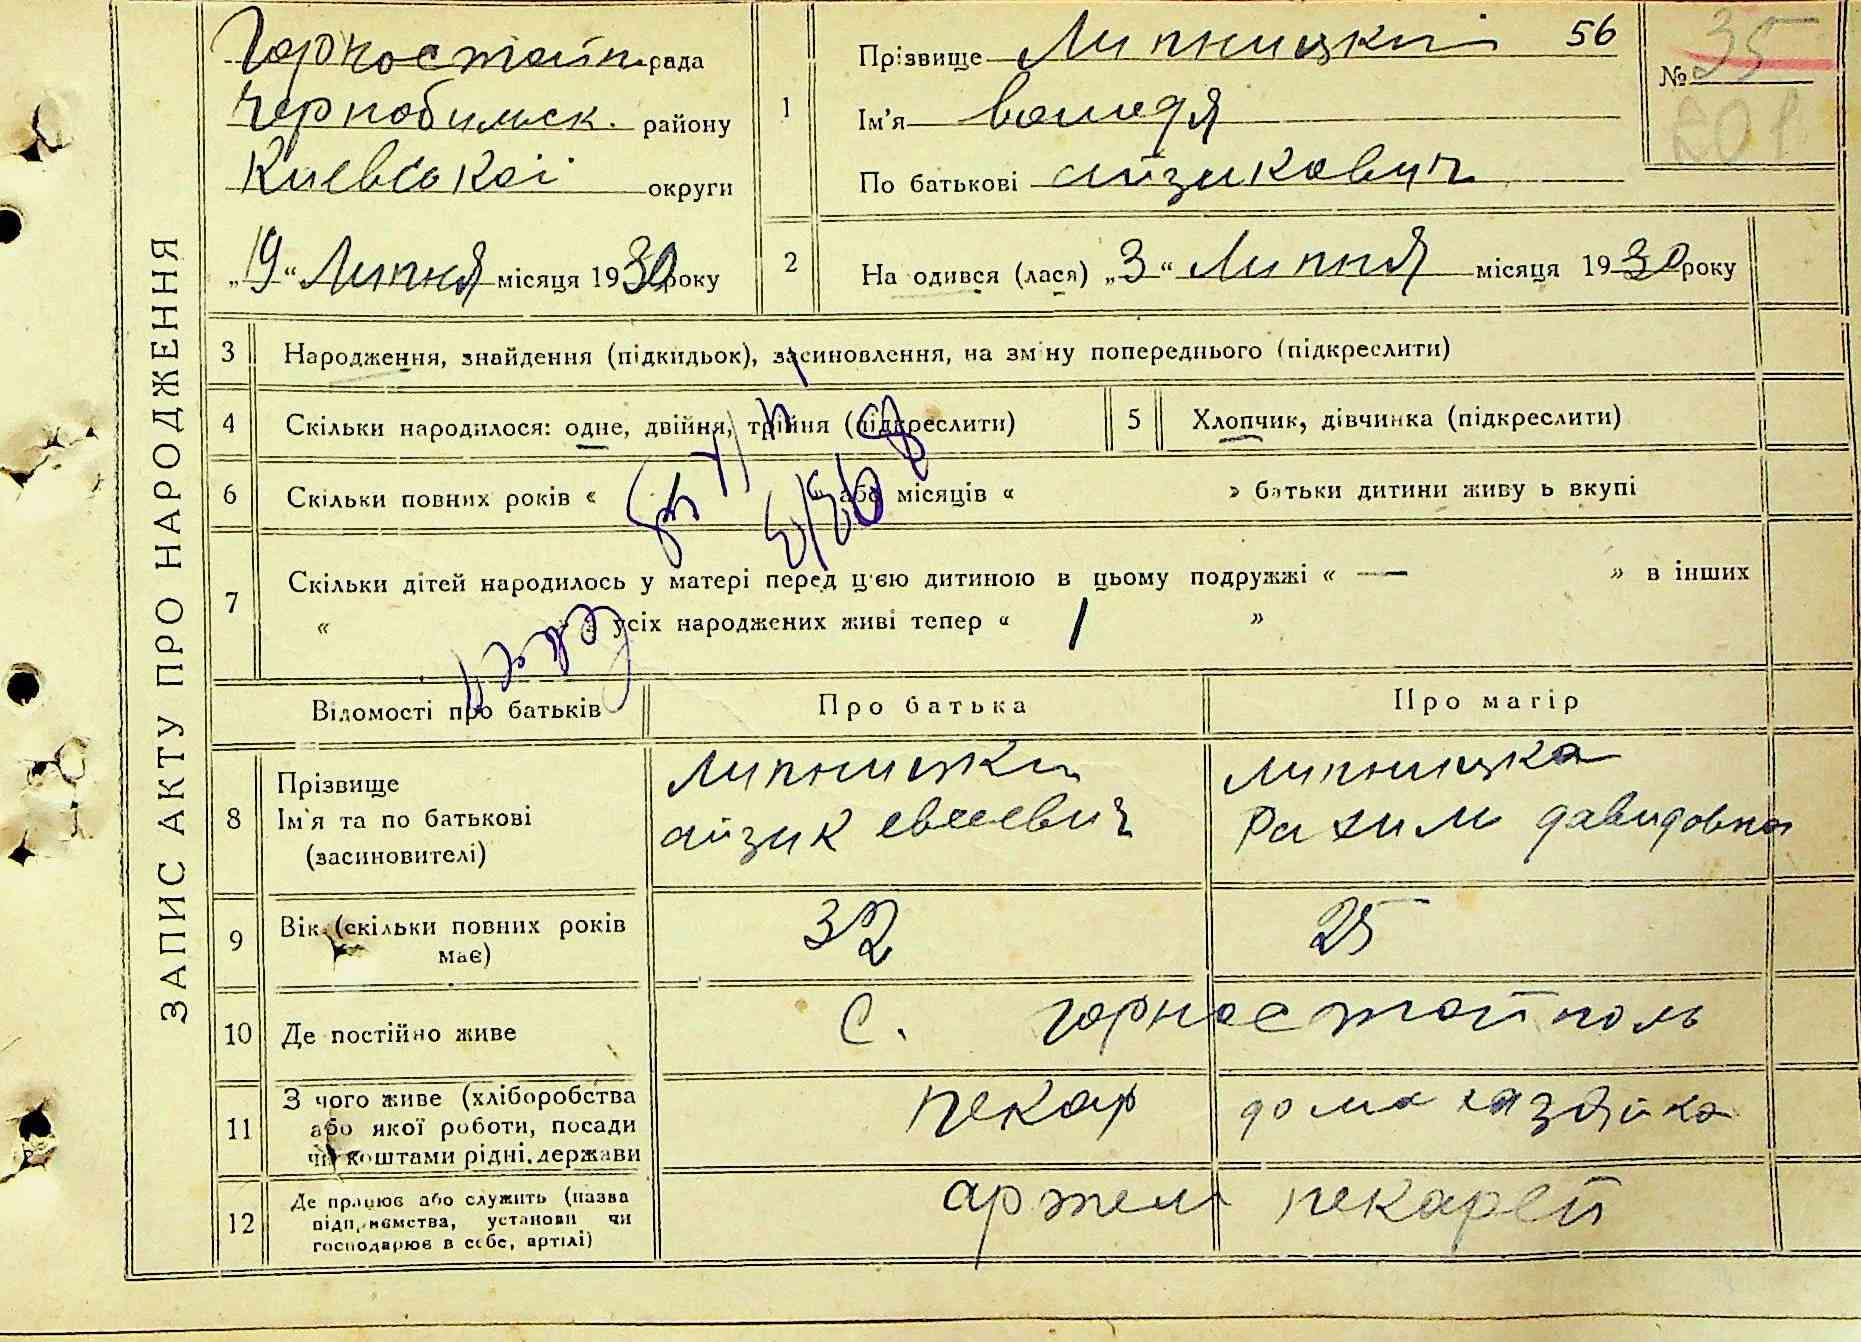 ЗАПИС АКТУ ПРО НАРОДЖЕННЯ
Горностайп. рада
Чернобильск. району
Киевської округи
„19“ Липня місяця 1930 року
1
Прізвище Липницкий 56
Ім'я Володя
По батькові Айзикович
№ 35
201
2
На одився (лася) „3“ Липня місяця 1930 року
3 Народження, знайдення (підкидьок), засиновлення, на зміну попереднього (підкреслити)
4 Скільки народилося: одне, двійня, трійня (підкреслити)
5 Хлопчик, дівчинка (підкреслити)
6 Скільки повних років « або місяців « » батьки дитини живу ь вкупі
7 Скільки дітей народилось у матері перед цією дитиною в цьому подружжі « — » в інших
« усіх народжених живі тепер « 1 »
Відомості про батьків Про батька Про матір
8 Прізвище
Ім'я та по батькові
(засиновителі)
Липницкий
Айзик Евсеевич
Липницка
Рахиль Давидовна
9 Вік (скільки повних років
має)
32 25
10 Де постійно живе с. Горностайполь
11 З чого живе (хліборобства
або якої роботи, посади
чи коштами рідні, держави
пекар дома хазяйка
12 Де працює або служить (назва
підприємства, установи чи
господарює в себе, артілі)
артель пекарей